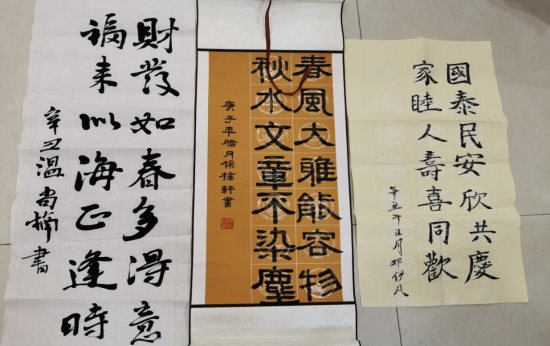 財發如春多得意
福来似海正逢時
辛丑溫尚楠書
春風大雅能容物
秋水文章不染塵
庚子年腊月杨梓軒書
國泰民安欣共慶
家睦人壽喜同歡
辛丑年正月